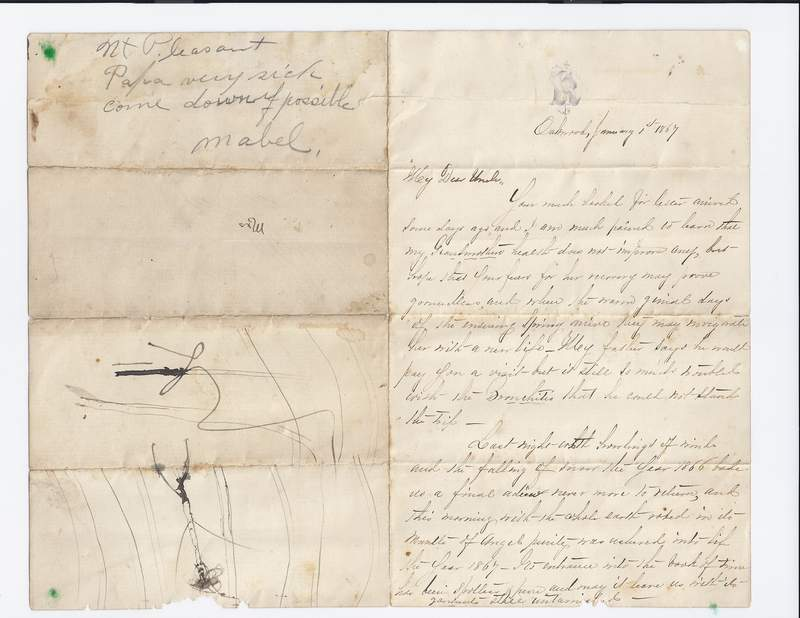 Mt Pleasant
Papa very sick
come down if possible
Mabel.
Oakwood, January 1st 1867
My Dear Uncle,
Your much looked for letter arrived
some days ago, and I am much pained to learn that
my Grandmothers health does not improve any, but
hope that your fears for her recovery may prove
groundless, and when the warm genial days
of the ensuing Spring arrive they may invigorate
her with a new life - My father says he would
pay you a visit but is still so much troubled
with the Bronchitis that he could not stand
the trip -
Last night with howlings of winds
and the falling of snow the Year 1866 bade
us a final adieu never more to return, and
this morning, with the whole earth robed in its
Mantle of Angel purity, was ushered into life
the Year 1867 - Its entrance into the book of time
has been spotless, pure and may it leave us with its
garments still untarnished -